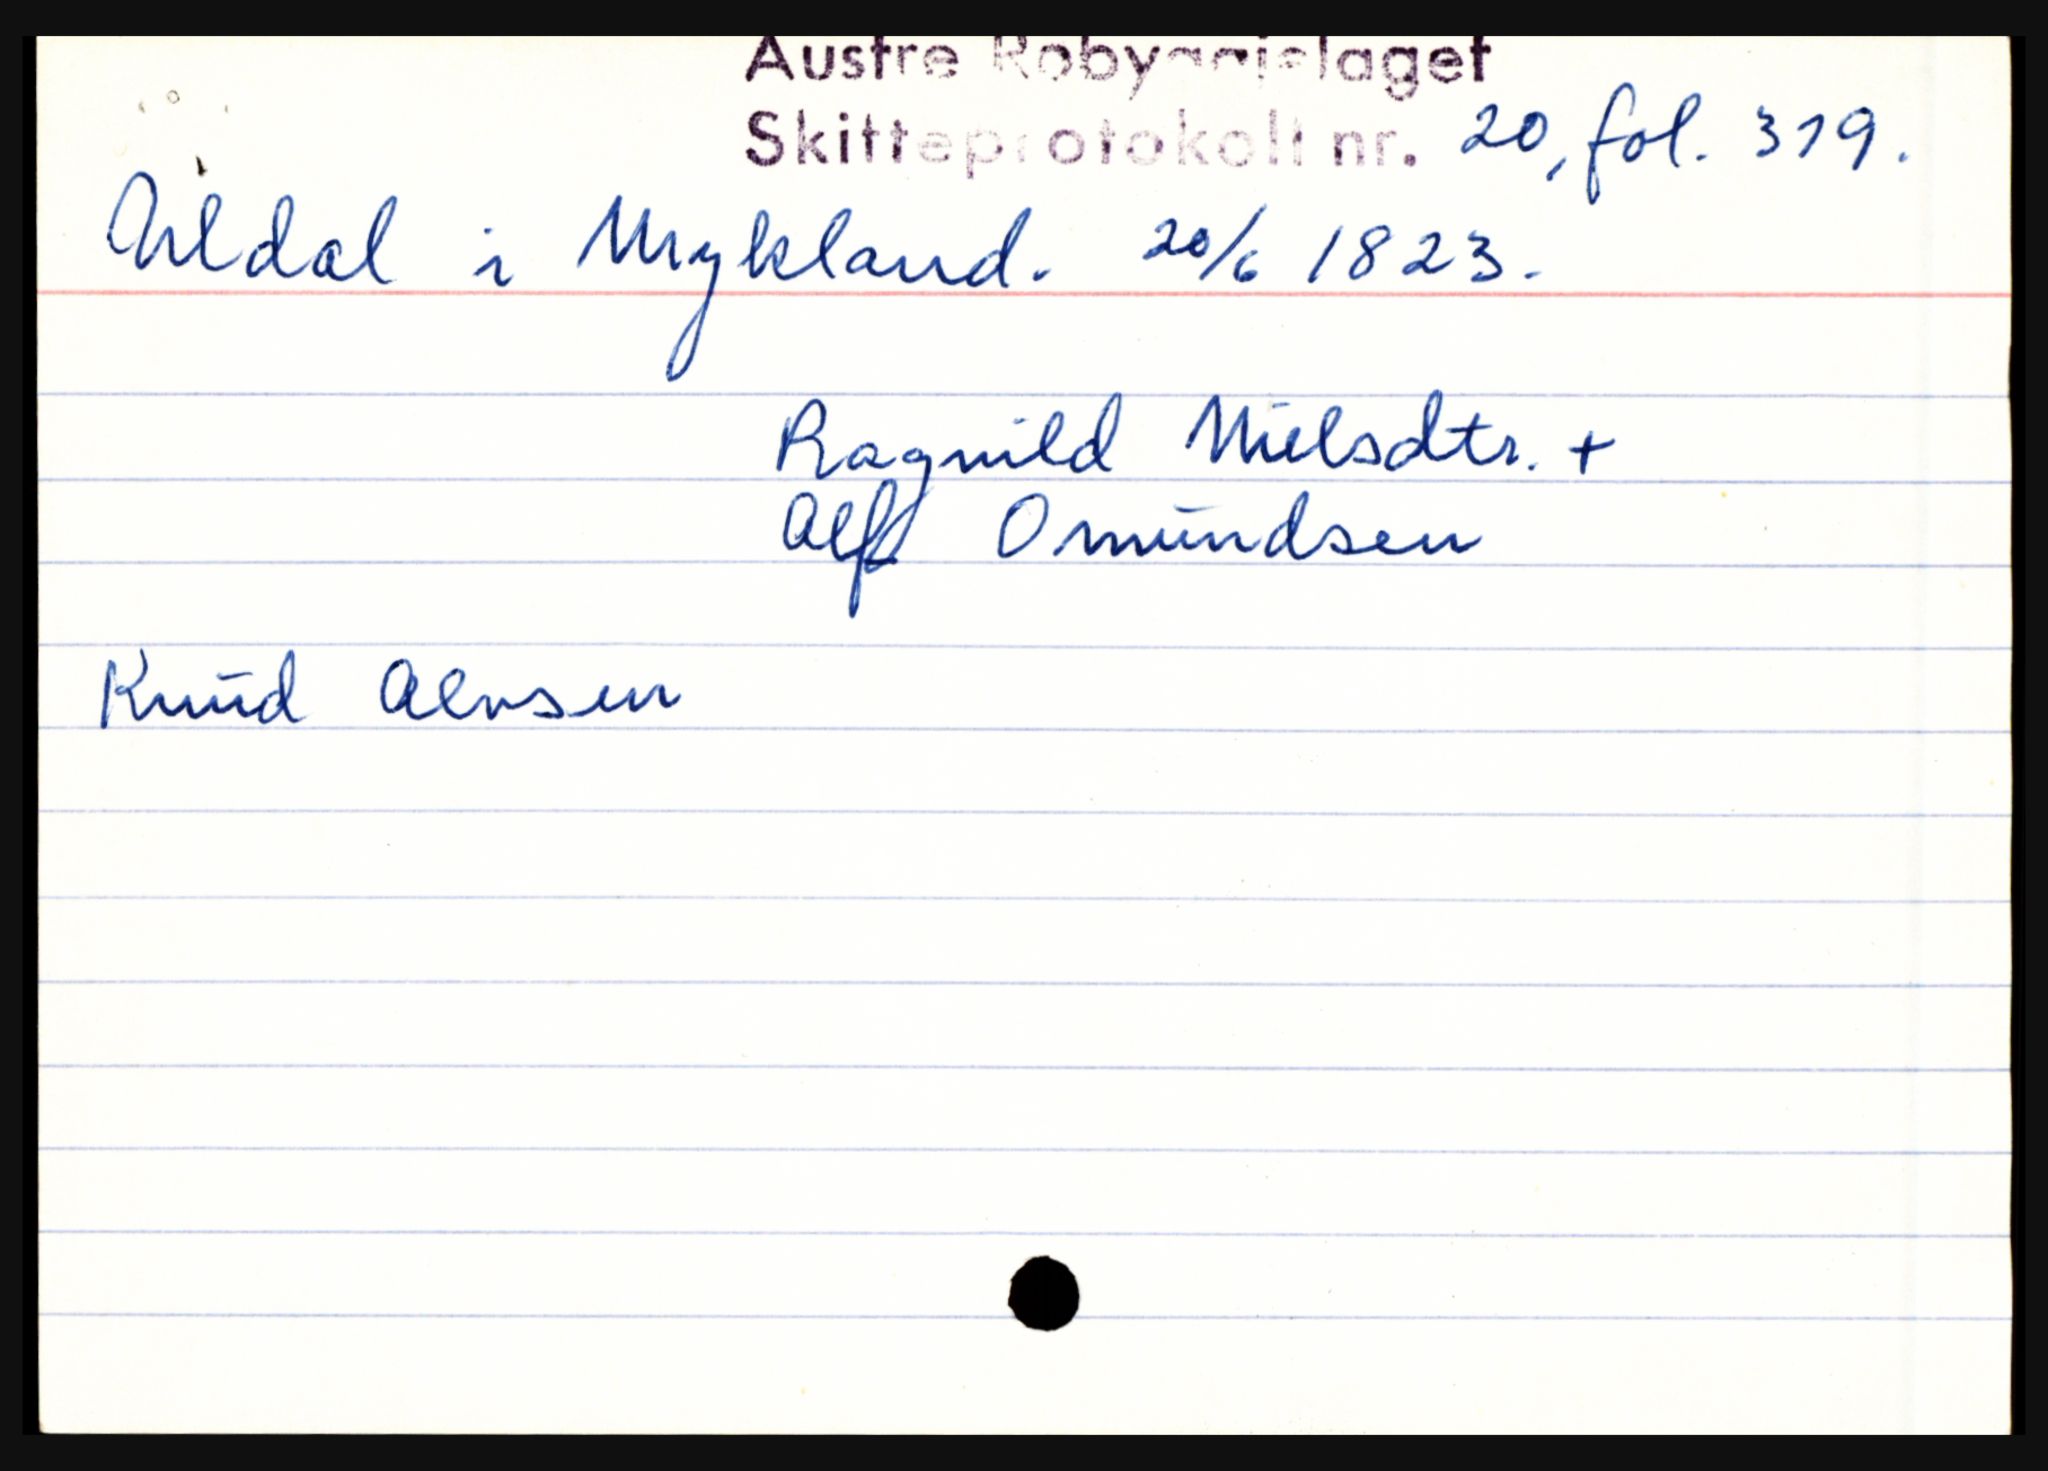 Austre Robyggjelaget
Skifteprotokoll nr. 20, fol. 319.
Uldal i Mykland. 20/6 1823.
Ragnild Nielsdtr. +
Alf Omundsen
Knud Alvsen